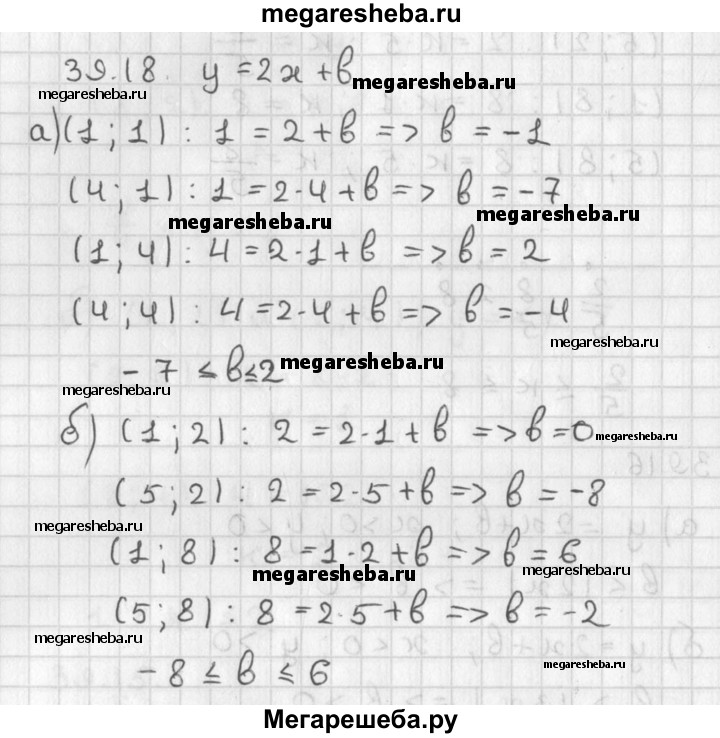 megaresheba.ru
39.18. y = 2x + b
megaresheba.ru
megaresheba.ru
а) (1; 1) : 1 = 2 + b => b = -1
(4; 1) : 1 = 2·4 + b => b = -7
megaresheba.ru
megaresheba.ru
(1; 4) : 4 = 2·1 + b => b = 2
(4; 4) : 4 = 2·4 + b => b = -4
megaresheba.ru
-7 ≤ b ≤ 2
megaresheba.ru
megaresheba.ru
б) (1; 2) : 2 = 2·1 + b => b = 0
megaresheba.ru
(5; 2) : 2 = 2·5 + b => b = -8
megaresheba.ru
(1; 8) : 8 = 1·2 + b => b = 6
megaresheba.ru
megaresheba.ru
(5; 8) : 8 = 2·5 + b => b = -2
megaresheba.ru
-8 ≤ b ≤ 6
megaresheba.ru
Мегарешеба.ру